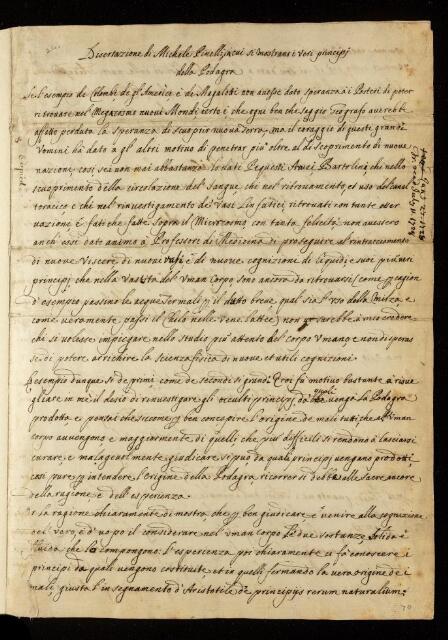 Dissertazione di Michele Pinelli, in cui si mostrano i veri principij
della Podagra
Se l'esempio de Colombi de gl'Americi è di Magaloti non avesse dato speranza à i Posteri di poter
ritrouare nel Megacosmo nuoui Mondi certo è che ogni ben che saggio Geografo averebbe
affatto perduta la speranza di scuoprir nuoua terra, ma il coraggio di questi grand'
Uomini hà dato à gl'altri motiuo di penetrar più oltre al discoprimento di nuoue
nazioni, così se à noi mai abbastanza lodati Arvei Bartolini, che nello
scuoprimento della circolazione del Sangue che nel ritrouamento et uso del canal
toracico e che nel rinuestigamento de Vasi Linfatici ritrouati con tante osser
uazione è fatiche fatte sopra il Microcosmo con tanta felicità non auessero
anch'essi dato animo à Professori di Medicina di proseguire al rintracciamento
di nuoue Viscere di nuoui vasi è di nuoue cognizione di liquidi e suoi primi
principij che nella Vastità dell'Uman Corpo sono ancora da ritrouarsi (come per cagion
d'esempio passino le acque Termali per il dutto breue qual sia l'uso della Milza e
come veramente passi il Chilo nelle vene lattee) non sarebbe à mio credere
che si volesse impiegare nello studio più attento del corpo Umano e non disperas
se di potere arrichire la scienza fisica di nuoue et utili cognizioni.
L'esempio dunque si de primi come de secondi si grandi Eroi fù motiuo bastante à risue
gliare in me il desio di rinuestigare gli occulti principij da quali venga la Podagra
prodotta e pensai che siccome per ben concepire l'origine de mali tutti che all'Uman
corpo auuengono e maggiormente di quelli che più difficili si rendono à lasciarsi
curare e malageuolmente giudicare si può da quali principij vengano prodotti,
così pure per intendere l'origine della Podagra ricorrer si debba alle Sacre ancore
della ragione e dell'esperienza.
E la ragione chiaramente dimostra, che per ben giudicare e venire alla cognizione
del vero, è d'uopo il considerare nel uman corpo le due sostanze solida e
fluida che lo compongono. L'esperienza poi chiaramente ci fà conoscere i
principi da quali vengono costituite, et in quelli fermando la vera origine de i
mali giusta l'insegnamento d'Aristotele de principijs rerum naturalium.
70